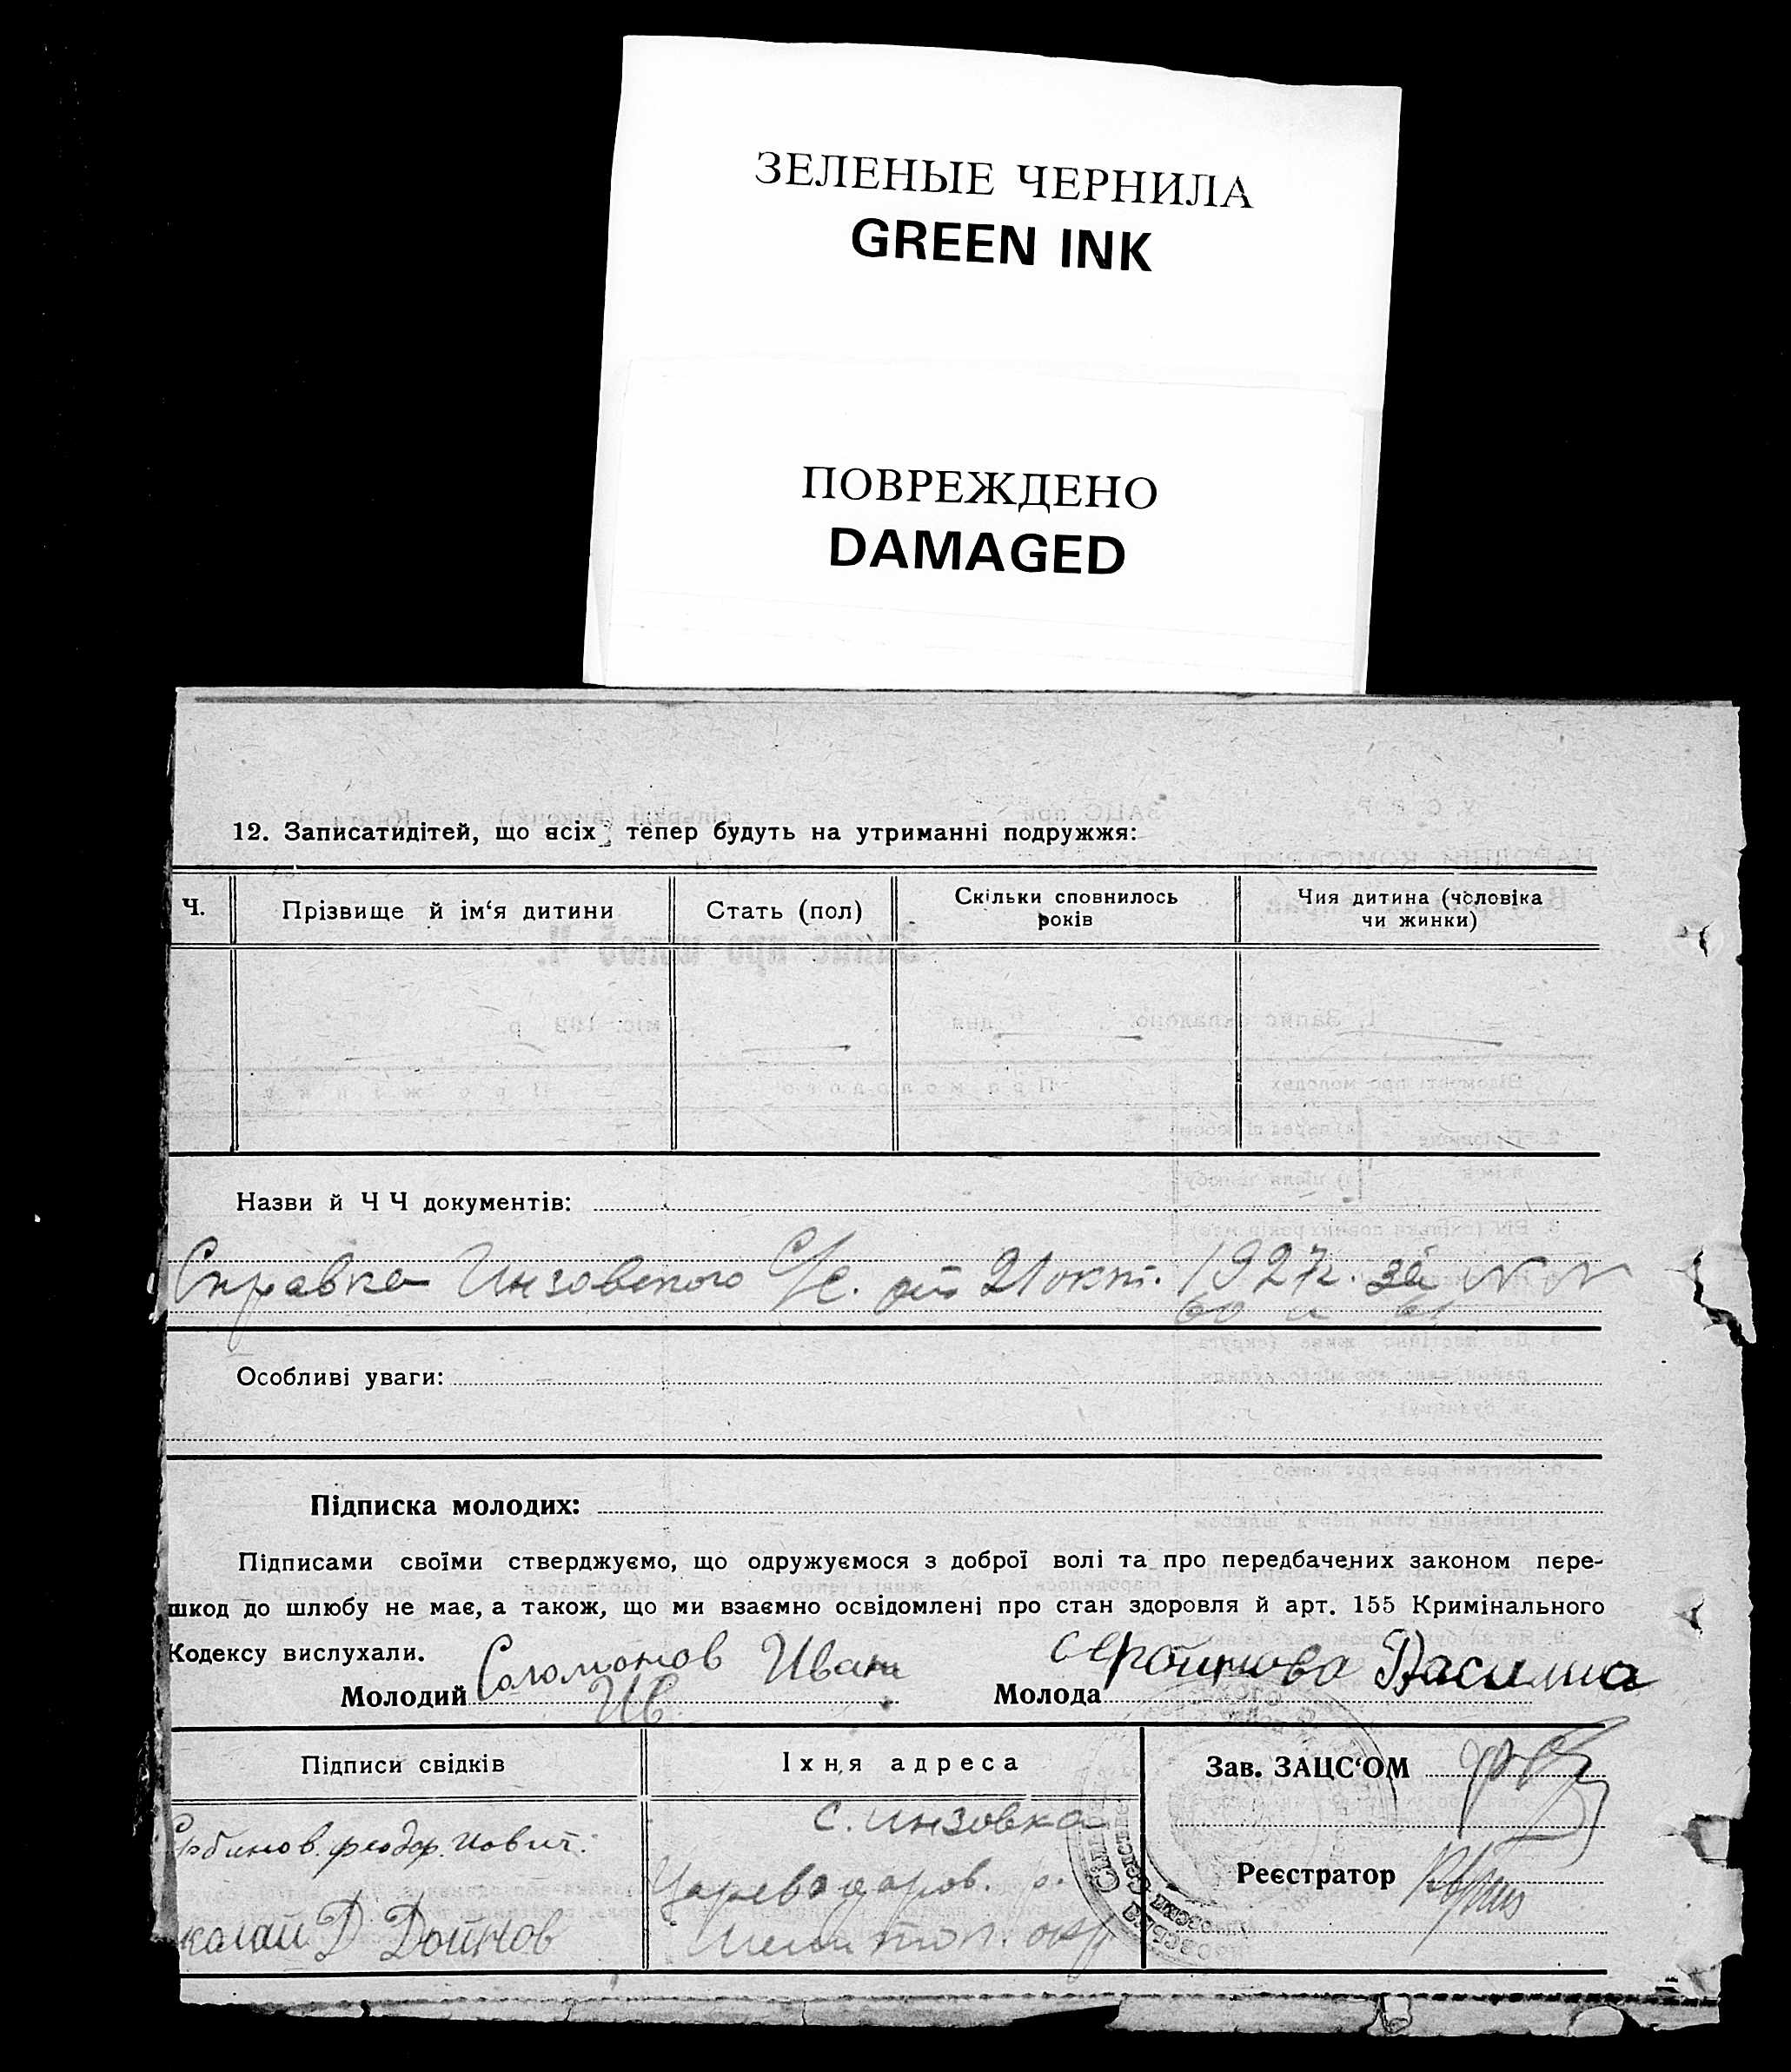 ЗЕЛЕНЫЕ ЧЕРНИЛА
GREEN INK
ПОВРЕЖДЕНО
DAMAGED
12. Записатидітей, що всіх тепер будуть на утриманні подружжя:
Ч. Прізвище й ім‘я дитини Стать (пол) Скільки сповнилось років Чия дитина (человіка чи жинки)
Назви й Ч Ч документів:
Справка Инзовского С/С. от 21 окт. 1927г. за N N
60 и 61
Особливі уваги:
Підписка молодих:
Підписами своїми стверджуємо, що одружуємося з доброї волі та про передбачених законом пере-
шкод до шлюбу не має, а також, що ми взаємно освідомлені про стан здоровля й арт. 155 Кримінального
Кодексу вислухали.
Молодий Соломонов Иван Молода Василиса
Підписи свідків Їхня адреса Зав. ЗАЦС‘ОМ
с. Инзовка
Цареводаров. р.
Реєстратор
колай Д Дойнов Мелитоп. окр